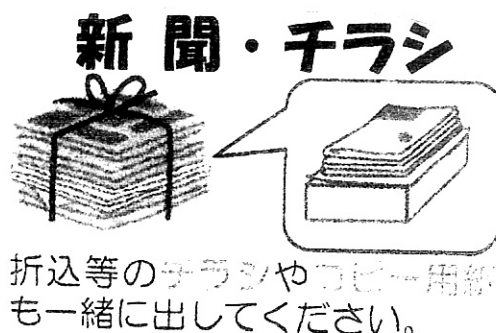 新聞・チラシ
折込等のチラシやコピー用紙
も一緒に出してください。